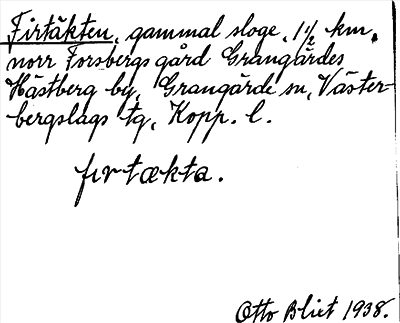 Firtäkten, gammal sloge, 1½ km.
norr Forsbergs gård Grangärdes
Hästberg by, Grangärde sn, Väster-
bergslags tg, Kopp. l.
fırtækta.
Otto Blixt 1938.